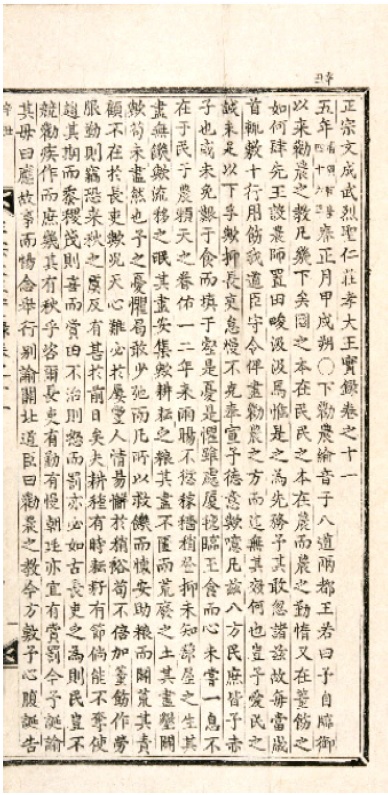 正宗文成武烈聖仁莊孝大王實錄卷之十一
五年清乾隆四十六年春正月甲戌朔〇下勸農綸音于八道兩都王若曰予自臨御
以來勸農之敎凡幾下矣國之本在民民之本在農而農之勤惰又在董飭之
如何肆先王設農師置田畯汲汲焉惟是之爲先務予其敢忽諸玆故每當歲
首輒敷十行用飭我道臣守令俾盡勸農之方而迄無其效何也豈予愛民之
誠未足以下孚歟抑長吏怠慢不克奉宣予德意歟噫凡玆八方民庶皆予赤
子也或未免艱于食而塡于壑是憂是懼雖處廈氈臨玉食而心未嘗一息不
在于民于農賴天之眷佑一二年來雨暘不愆稼穡稍登抑未知蔀屋之生其
盡無饑歟流移之氓其盡安集歟耕耘之糧其盡不匱而荒廢之土其盡墾闢
歟苟未盡然也予之憂懼曷敢少弛而凡所以救饑而懷安助粮而闢荒其責
顧不在於長吏歟況天心難必於屢豐人情易懈於稍裕苟不倍加董飭作勞
服勤則竊恐來秋之虞反有甚於前日矣夫耕種有時耘耔有節倘能不奪使
趁其期而黍稷茂則喜而賞田不治則怒而罰亦必如古長吏之爲則民豈不
競勸疾作而庶幾其有秋乎咨爾長吏有勤有慢朝廷亦宜有賞罰今予誕諭
其毋曰應故事而惕念擧行別諭關北道臣曰勸農之敎今方敷予心腹誕告